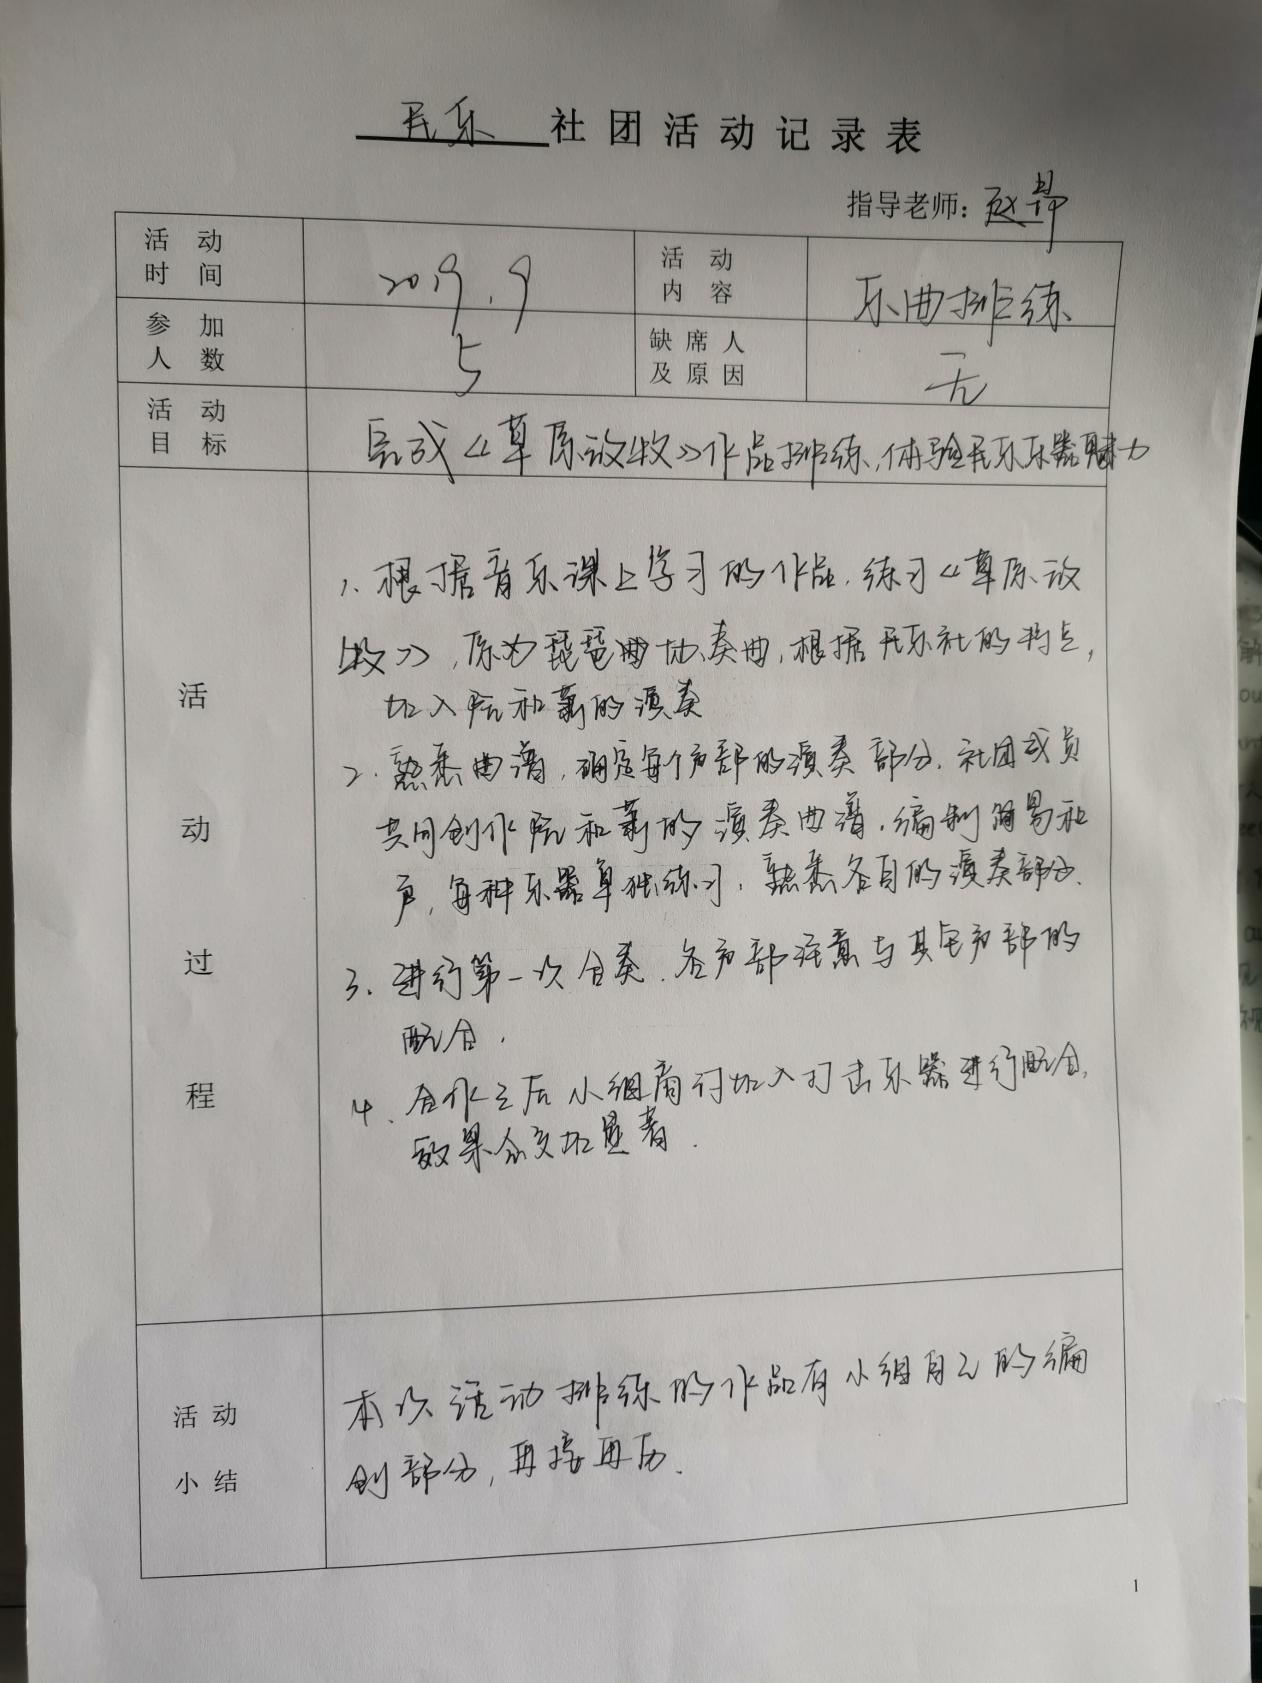 民乐 社团活动记录表
指导老师：赵
活动时间 2019.9 活动内容 乐曲排练
参加人数 5 缺席人及原因 无
活动目标 完成《草原放牧》作品排练,体验民乐乐器魅力
活动过程
1、根据音乐课上学习的作品,练习《草原放
牧》,原为琵琶曲协奏曲,根据民乐社的特点,
加入阮和萧的演奏
2、熟悉曲谱,确定每个声部的演奏部分.社团成员
共同创作阮和萧的演奏曲谱,编制简易和
声,每种乐器单独练习,熟悉各自的演奏部分.
3、进行第一次合奏.各声部注意与其它声部的
配合.
4、合作之后小组商讨加入打击乐器进行配合,
效果会更加显著.
活动小结
本次活动排练的作品有小组自己的编
创部分,再接再历.
1